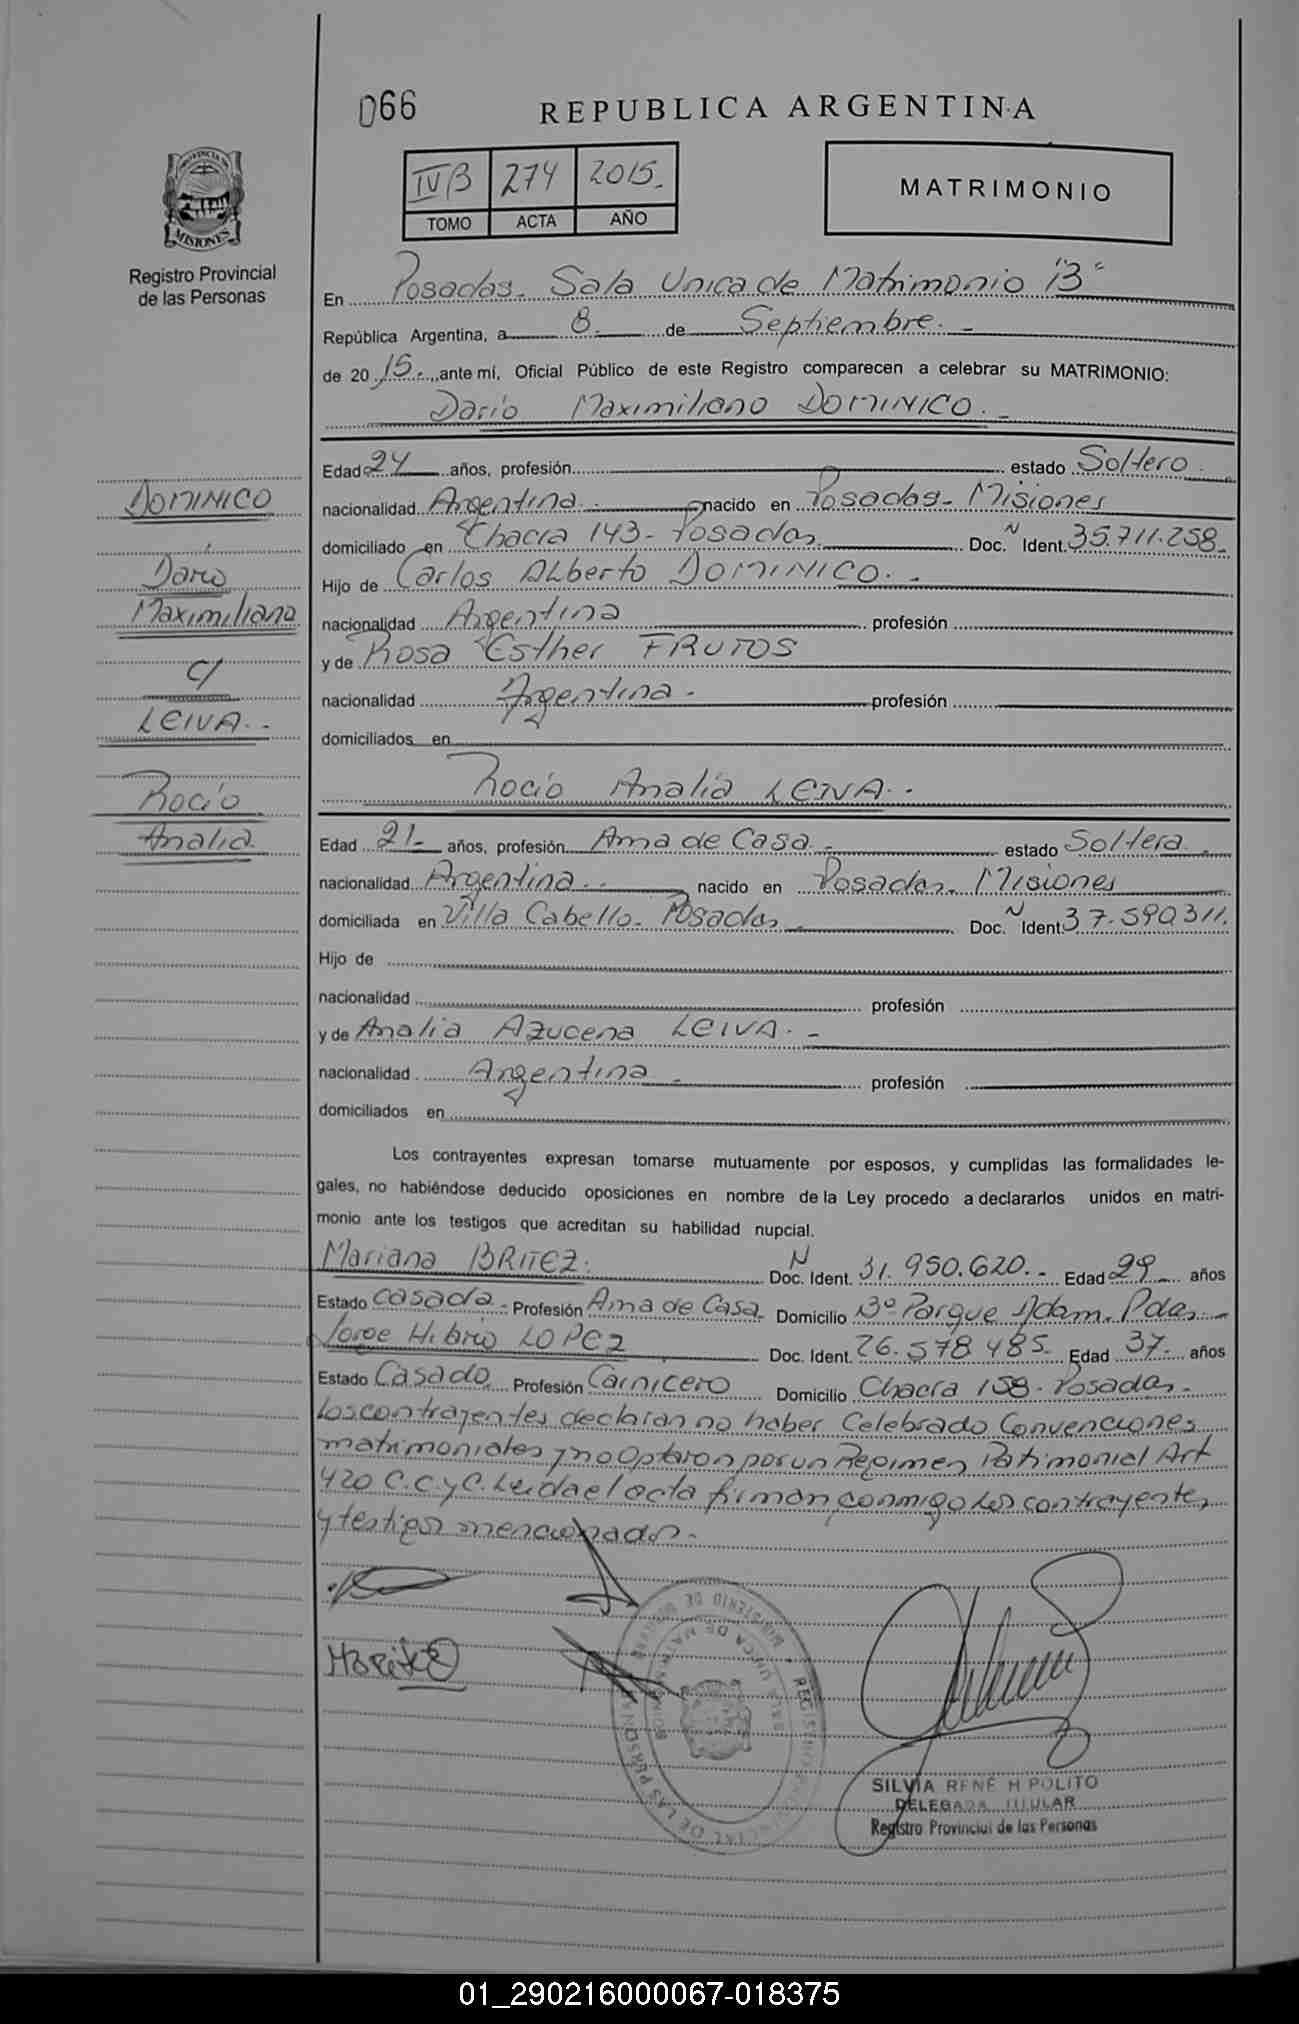 066
REPUBLICA ARGENTINA
IV B 274 2015.
TOMO ACTA AÑO
MATRIMONIO
PROVINCIA DE
MISIONES
Registro Provincial
de las Personas
En Posadas. Sala Unica de Matrimonio "B"
República Argentina, a 8. de Septiembre. -
de 20 15. ante mi, Oficial Público de este Registro comparecen a celebrar su MATRIMONIO:
Dario Maximiliano DOMINICO. -
Edad 24 años, profesión estado Soltero.
nacionalidad Argentina. nacido en Posadas - Misiones
domiciliado en Chacra 143 - Posadas. Doc. N Ident. 35.711.258.
Hijo de Carlos ALberto DOMINICO. -
nacionalidad Argentina profesión
y de Rosa Esther FRUTOS
nacionalidad Argentina. profesión
domiciliados en
Rocío Analia LEIVA. -
Edad 21- años, profesión Ama de Casa. - estado Soltera. -
nacionalidad Argentina. - nacido en Posadas. Misiones
domiciliada en Villa Cabello. Posadas Doc. N Ident. 37.590.311.
Hijo de
nacionalidad profesión
y de Analia Azucena LEIVA. -
nacionalidad Argentina - profesión
domiciliados en
DOMINICO
Darío
Maximiliano
C/
LEIVA. -
Rocío
Analia
Los contrayentes expresan tomarse mutuamente por esposos, y cumplidas las formalidades le-
gales, no habiéndose deducido oposiciones en nombre de la Ley procedo a declararlos unidos en matri-
monio ante los testigos que acreditan su habilidad nupcial.
Mariana BRITEZ. Doc. N Ident. 31.950.620. - Edad 29 años
Estado casada. Profesión Ama de Casa Domicilio Bº Parque Adam. Pdas.
Jorge Hibrio LOPEZ Doc. Ident. 26.578.485. Edad 37. años
Estado Casado Profesión Carnicero Domicilio Chacra 158 - Posadas.
Los contrayentes declaran no haber Celebrado Convenciones
matrimoniales y no Optaron por un Regimen Patrimonial Art
420 C.C.y C. Leida el acta firman conmigo los contrayentes
y testigos mencionados. -
SILVIA RENÉ HIPOLITO
DELEGADA TITULAR
Registro Provincial de las Personas
01_290216000067-018375